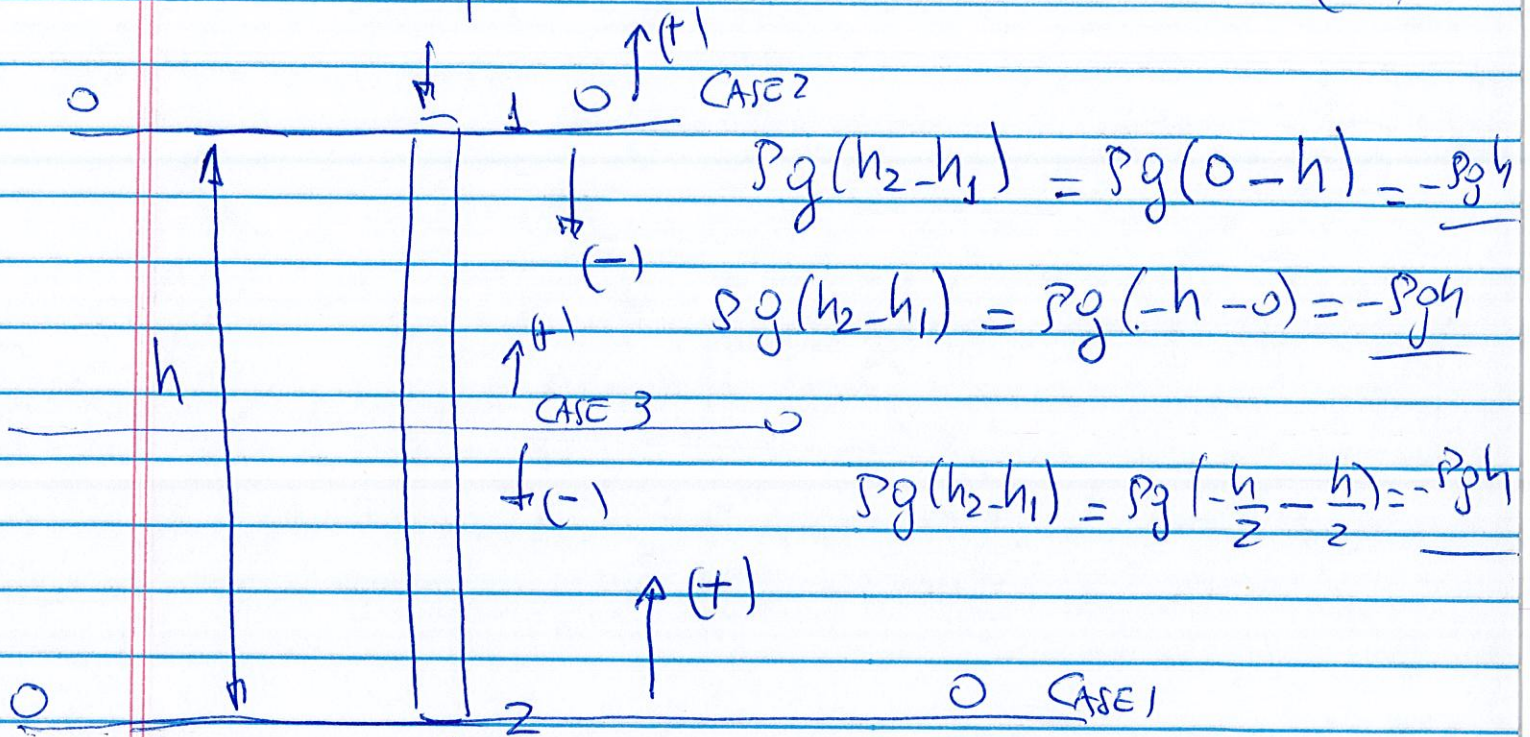 (+)
0 1 0 CASE 2
ρg(h₂-h₁) = ρg(0-h) = -ρgh
(-)
ρg(h₂-h₁) = ρg(-h-0) = -ρgh
(+)
h
CASE 3 0
(-)
ρg(h₂-h₁) = ρg(-h/2 - h/2) = -ρgh
(+)
0 2 0 CASE 1